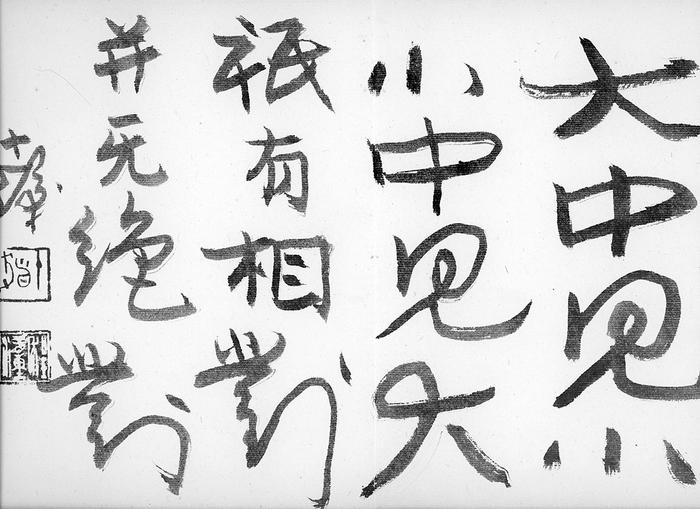 大中见小
小中见大
祇有相對
并无绝對